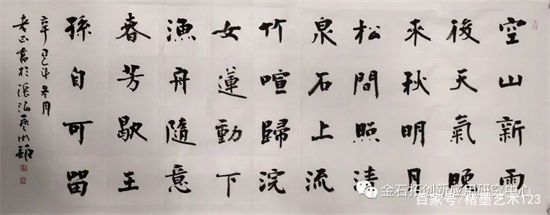 空山新雨
後天氣晚
来秋明月
松間照清
泉石上流
竹喧歸浣
女蓮動下
漁舟隨意
春芳歇王
孫自可留
辛 年冬月
書於
金石拓创新应用研究中心
百家号/楮墨艺术123